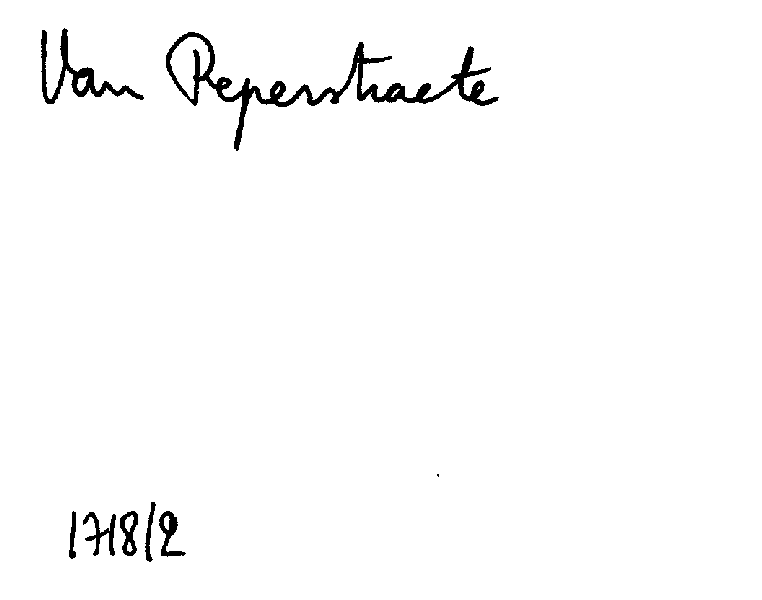 Van Peperstraete
1718/2